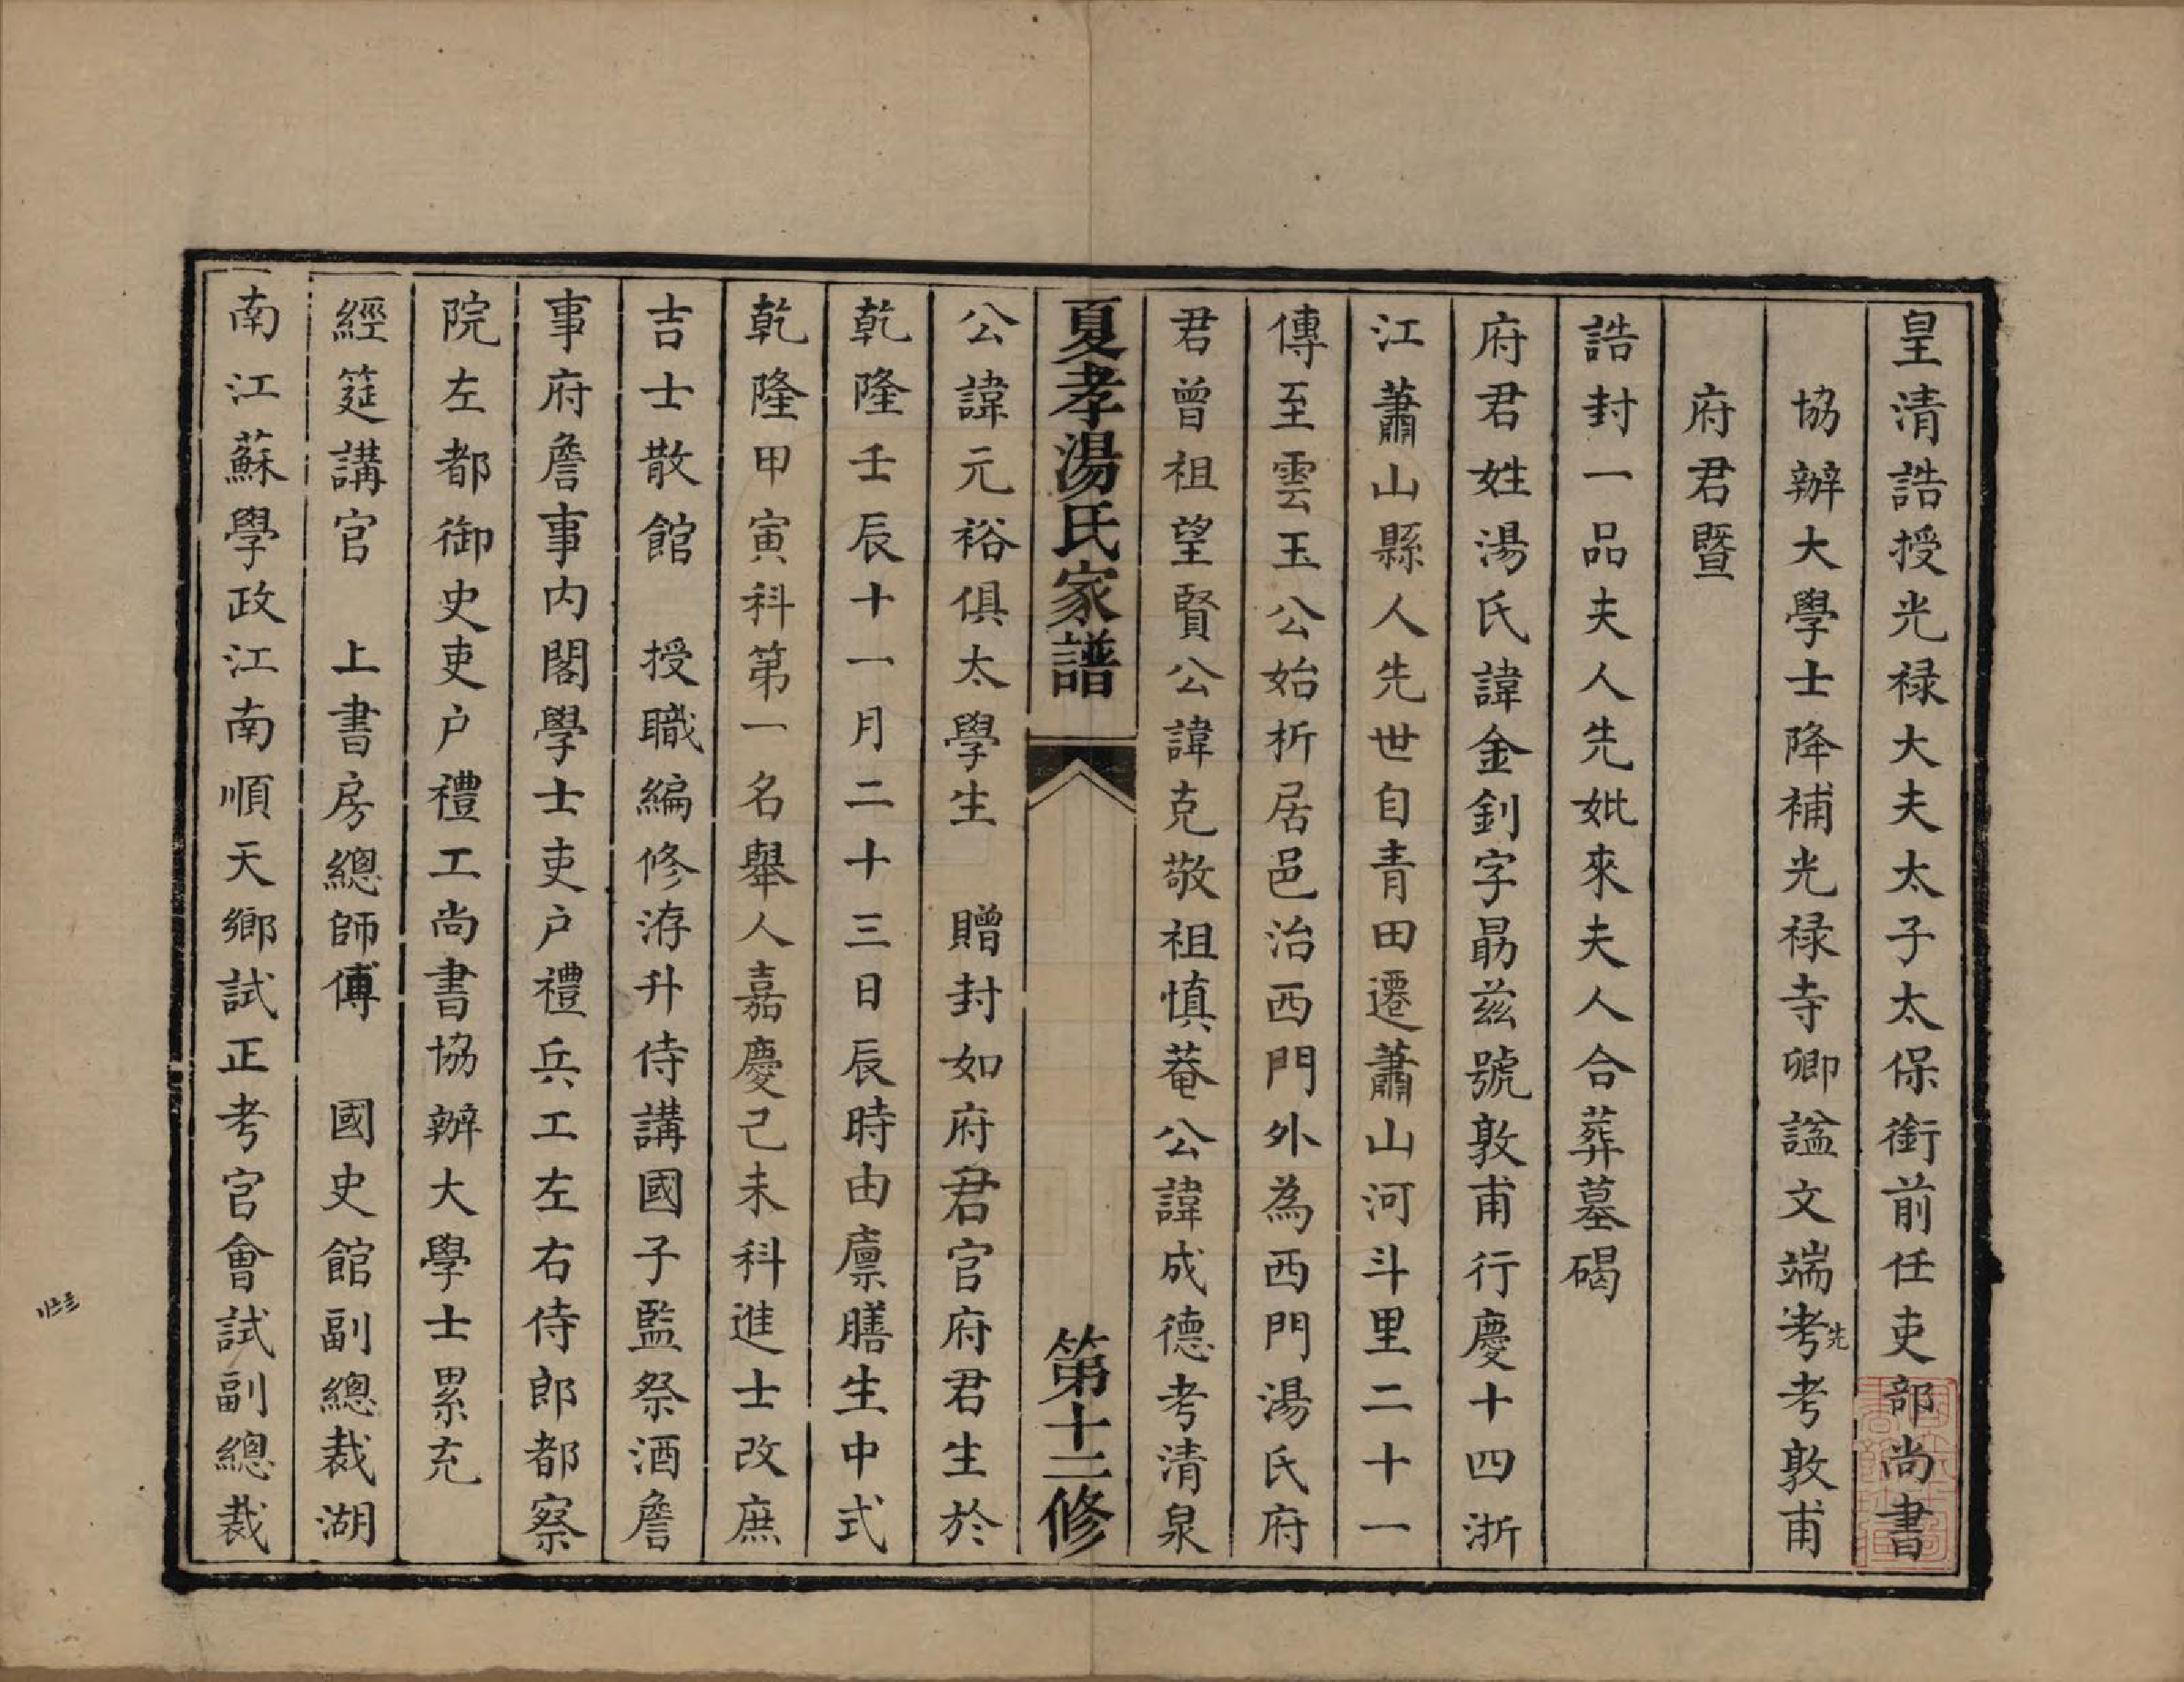 皇清誥授光禄大夫太子太保銜前任吏部尚書
協辦大學士降補光禄寺卿諡文端考先考敦甫
府君暨
誥封一品夫人先妣來夫人合葬墓碣
府君姓湯氏諱金釗字勗茲號敦甫行慶十四浙
江蕭山縣人先世自青田遷蕭山河斗里二十一
傳至雲玉公始析居邑治西門外為西門湯氏府
君曾祖望賢公諱克敬祖慎菴公諱成德考清泉
夏孝湯氏家譜 第十二修
公諱元裕俱太學生 贈封如府君官府君生於
乾隆壬辰十一月二十三日辰時由廪膳生中式
乾隆甲寅科第一名舉人嘉慶己未科進士改庶
吉士散館 授職編修洊升侍講國子監祭酒詹
事府詹事内閣學士吏户禮兵工左右侍郎都察
院左都御史吏户禮工尚書協辦大學士累充
經筵講官 上書房總師傅 國史館副總裁湖
南江蘇學政江南順天鄉試正考官會試副總裁